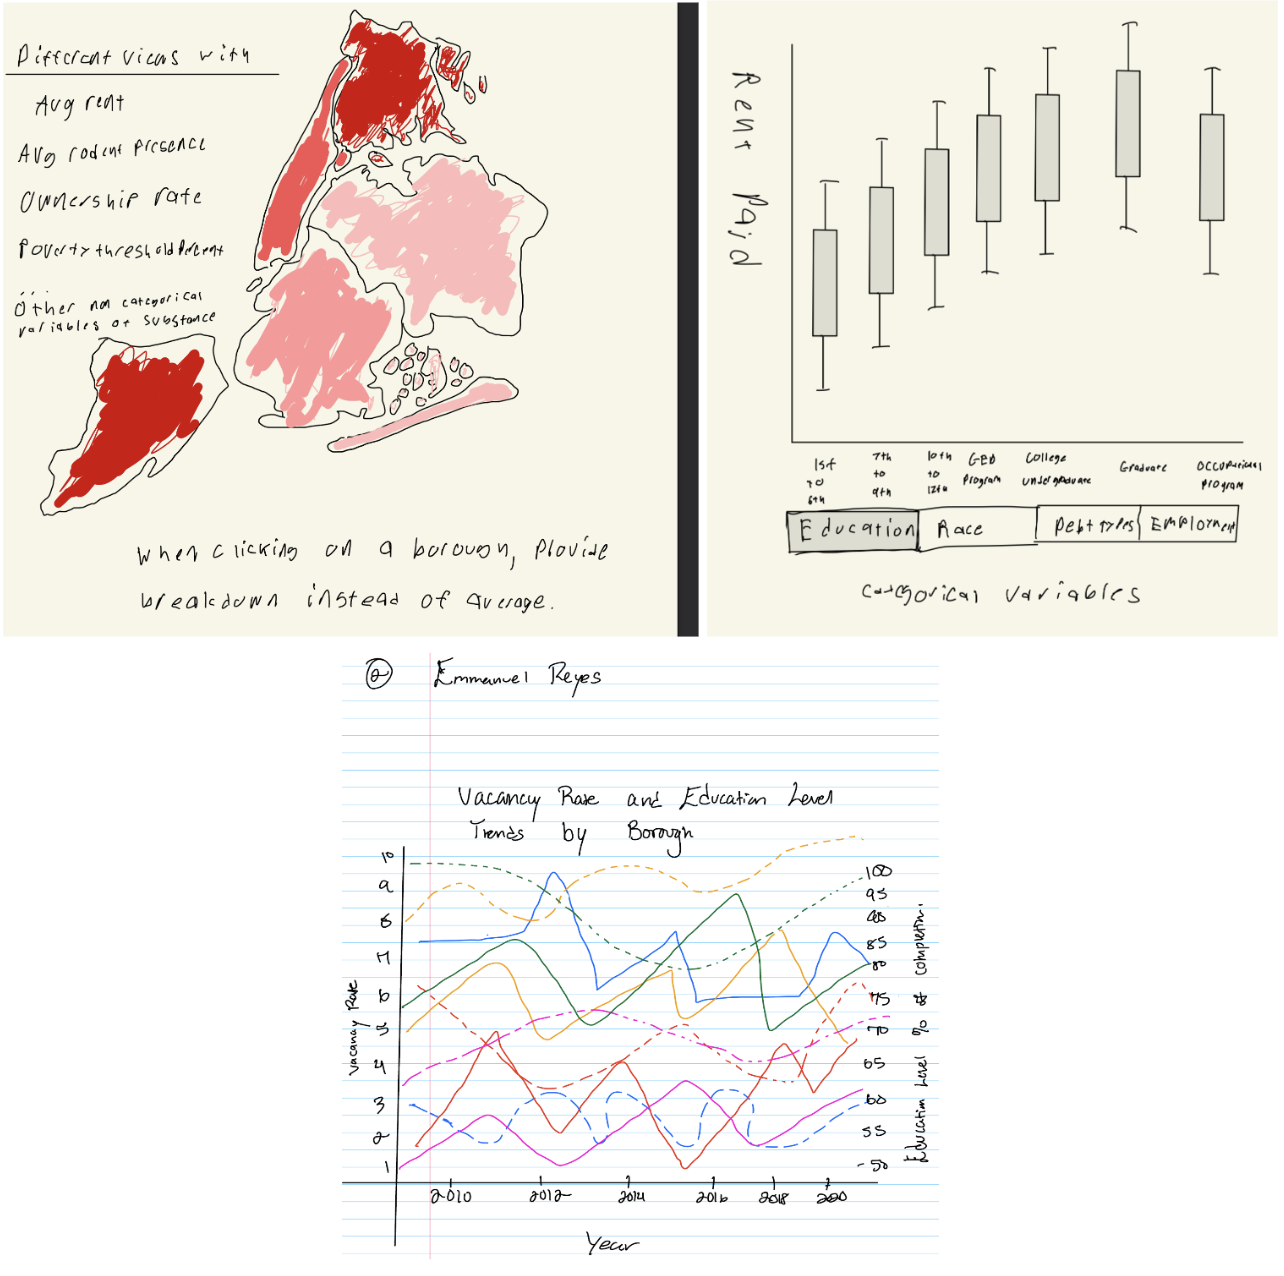 Different views with
Avg rent
Avg rodent presence
Ownership rate
Poverty threshold percent
...
Other non categorical
variables of substance
When clicking on a borough, provide
breakdown instead of average.
Rent Paid
1st to 6th
7th to 9th
10th to 12th
GED Program
College undergraduate
Graduate
Occupational program
Education
Race
Debt types
Employment
Categorical variables
2
Emmanuel Reyes
Vacancy Rate and Education Level
Trends by Borough
10
9
8
7
6
5
4
3
2
1
Vacancy Rate
100
95
90
85
80
75
70
65
60
55
50
Education Level % of completion.
2010 2012 2014 2016 2018 2020
Year